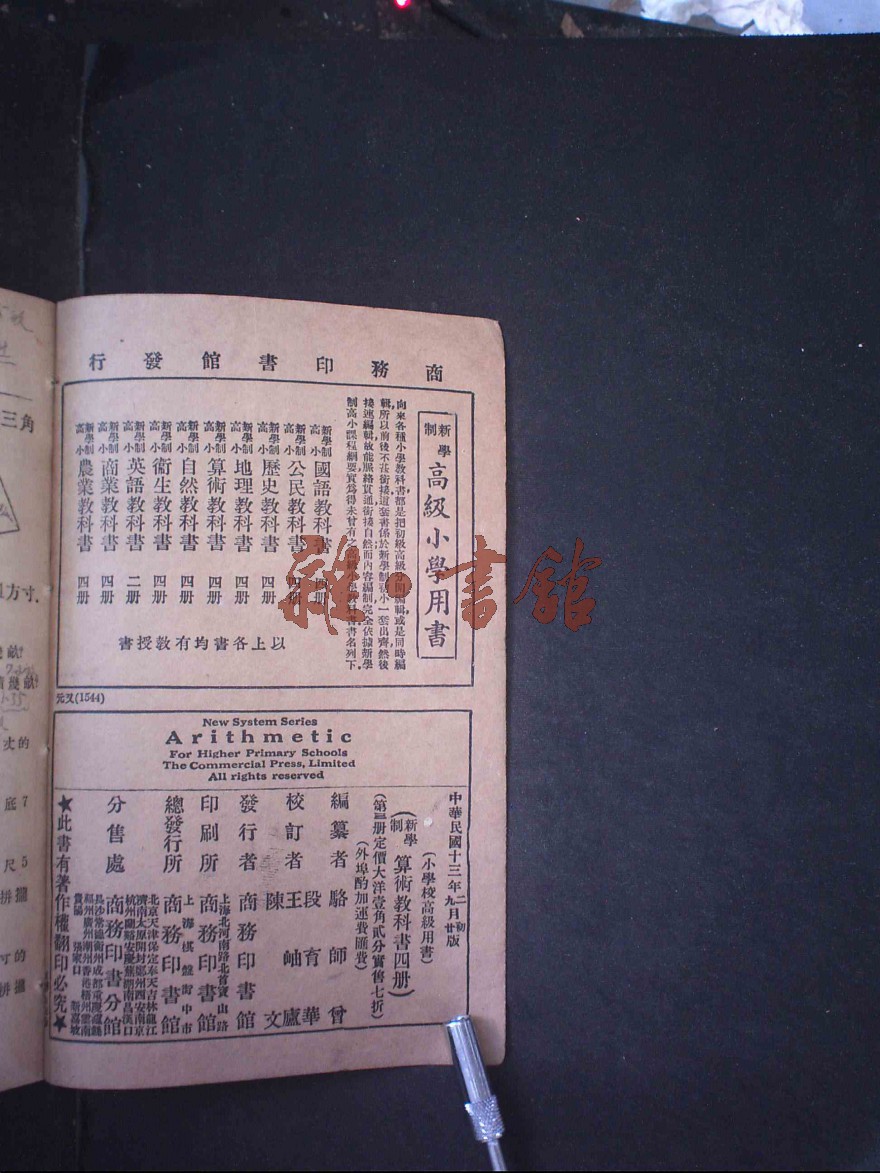 商務印書館發行
新學制
高級小學用書
向來各種小學教科書都是把初級高級分開編輯或是同時編
輯所以前後不甚銜接這套書係於新學制初小一套出齊然後
接連編輯故能脈絡貫通銜接自然而內容編制完全依據新學
制高小課程綱要實為得未曾有之
書名列下
新學制高小 國語教科書 四册
新學制高小 公民教科書 四册
新學制高小 歷史教科書 四册
新學制高小 地理教科書 四册
新學制高小 算術教科書 四册
新學制高小 自然教科書 四册
新學制高小 衞生教科書 四册
新學制高小 英語教科書 二册
新學制高小 商業教科書 四册
新學制高小 農業教科書 四册
以上各書均有教授書
元又(1544)
New System Series
Arithmetic
For Higher Primary Schools
The Commercial Press, Limited
All rights reserved
中華民國十三年
(小學校高級用書)
(新學制 算術教科書四册)
册定價大洋壹角貳分實售七折)
(外埠酌加運費匯費)
編纂者 駱師曾
校訂者 段育華
王岫廬
陳文
發行者 商務印書館
上海北河南路北首寶山路
印刷所 商務印書館
上海棋盤街中市
總發行所 商務印書館
北京天津保定奉天吉林龍江
濟南太原開封鄭州西安南京
杭州蘭谿安慶蕪湖南昌漢口
分售處 商務印書分館
長沙常德衡州成都重慶瀘縣
福州廣州潮州香港梧州雲南
貴陽 張家口 新嘉坡
★此書有著作權翻印必究★
三角
方寸.
畝?
丈的
底7
尺5
拼攏
寸的
拼攏
雜·書館